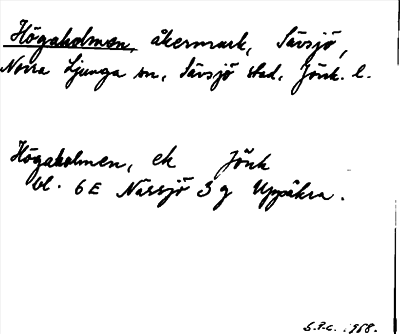 Högaholmen, åkermark, Sävsjö,
Norra Ljunga sn, Sävsjö stad, Jönk. l.
Högaholmen, ek Jönk
bl. 6E Nässjö 3 g Uppåkra.
S.P.C. 1968.